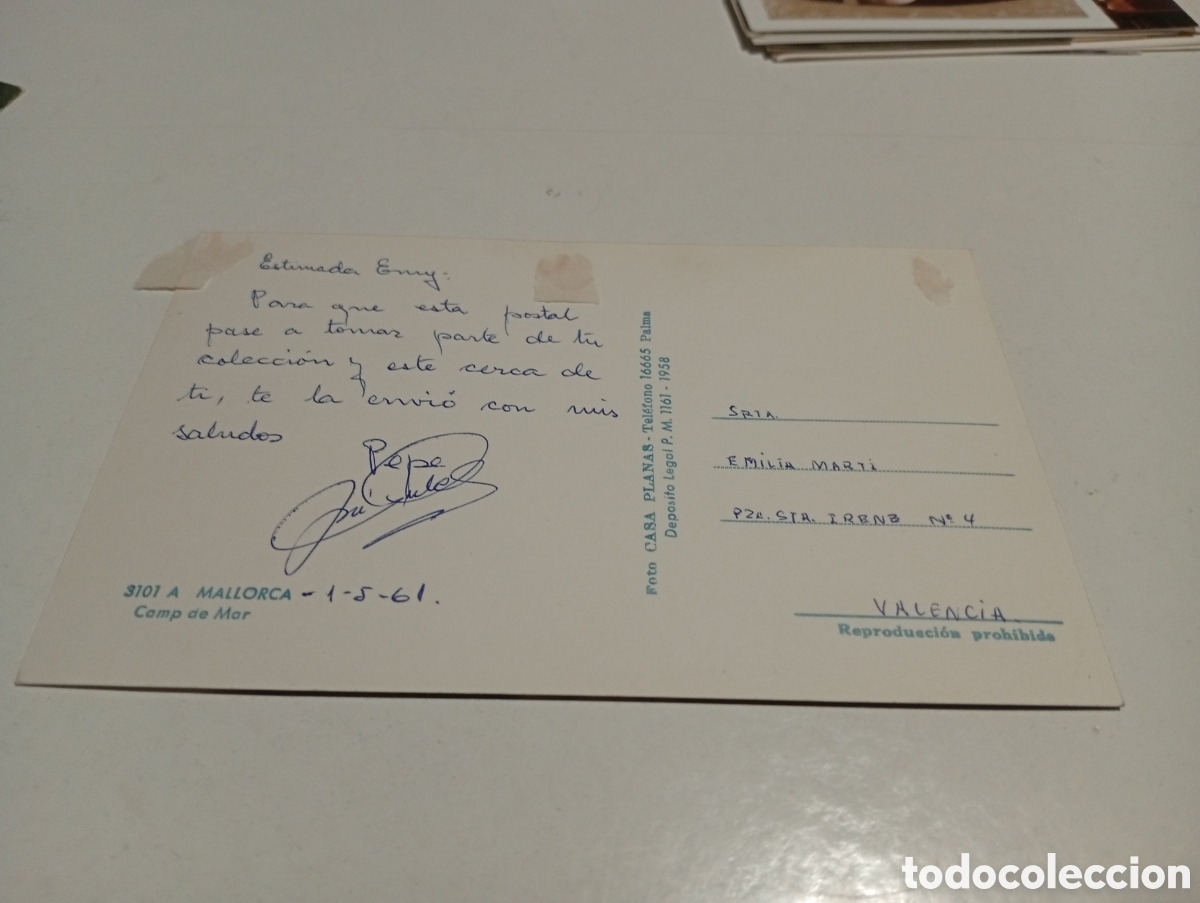 Estimada Emy:
Para que esta postal
pase a tomar parte de tu
colección y este cerca de
ti, te la envió con mis
saludos
Pepe
3101 A MALLORCA - 1-5-61.
Camp de Mar
Foto CASA PLANAS - Teléfono 16665 Palma
Deposito Legal P. M. 1161 - 1958
SRTA.
EMILIA MARTI
PZA. STA. IRENE Nº 4
VALENCIA.
Reproducción prohibida
todocoleccion